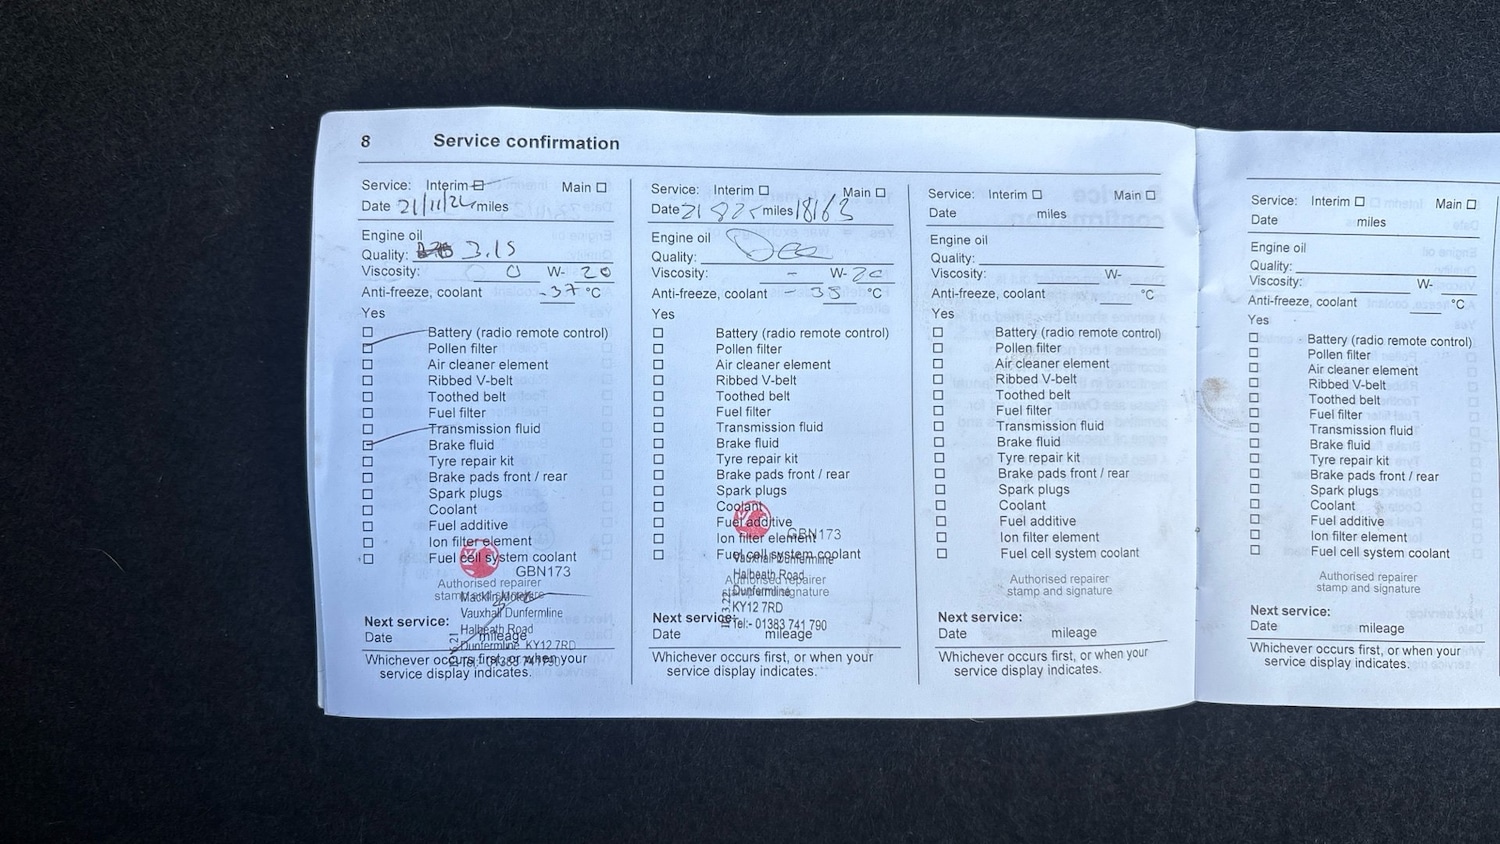 8 Service confirmation
Service: Interim Main
Date 21/11/24 miles
Engine oil
Quality: 3.15
Viscosity: 0 W- 20
Anti-freeze, coolant -37 °C
Yes
Battery (radio remote control)
Pollen filter
Air cleaner element
Ribbed V-belt
Toothed belt
Fuel filter
Transmission fluid
Brake fluid
Tyre repair kit
Brake pads front / rear
Spark plugs
Coolant
Fuel additive
Ion filter element
Fuel cell system coolant
GBN173
Authorised repairer
stamp and signature
Macklin Motors
Vauxhall Dunfermline
Halbeath Road
Dunfermline KY12 7RD
Next service:
Date mileage
Whichever occurs first, or when your
service display indicates.
Service: Interim Main
Date 21 8 25 miles 18163
Engine oil
Quality:
Viscosity: - W-
Anti-freeze, coolant °C
Yes
Battery (radio remote control)
Pollen filter
Air cleaner element
Ribbed V-belt
Toothed belt
Fuel filter
Transmission fluid
Brake fluid
Tyre repair kit
Brake pads front / rear
Spark plugs
Coolant
Fuel additive
Ion filter element
Fuel cell system coolant
GBN173
Vauxhall Dunfermline
Halbeath Road
Dunfermline
KY12 7RD
Tel:- 01383 741 790
Authorised repairer
stamp and signature
Next service:
Date mileage
Whichever occurs first, or when your
service display indicates.
Service: Interim Main
Date miles
Engine oil
Quality:
Viscosity: W-
Anti-freeze, coolant °C
Yes
Battery (radio remote control)
Pollen filter
Air cleaner element
Ribbed V-belt
Toothed belt
Fuel filter
Transmission fluid
Brake fluid
Tyre repair kit
Brake pads front / rear
Spark plugs
Coolant
Fuel additive
Ion filter element
Fuel cell system coolant
Authorised repairer
stamp and signature
Next service:
Date mileage
Whichever occurs first, or when your
service display indicates.
Service: Interim Main
Date miles
Engine oil
Quality:
Viscosity: W-
Anti-freeze, coolant °C
Yes
Battery (radio remote control)
Pollen filter
Air cleaner element
Ribbed V-belt
Toothed belt
Fuel filter
Transmission fluid
Brake fluid
Tyre repair kit
Brake pads front / rear
Spark plugs
Coolant
Fuel additive
Ion filter element
Fuel cell system coolant
Authorised repairer
stamp and signature
Next service:
Date mileage
Whichever occurs first, or when your
service display indicates.